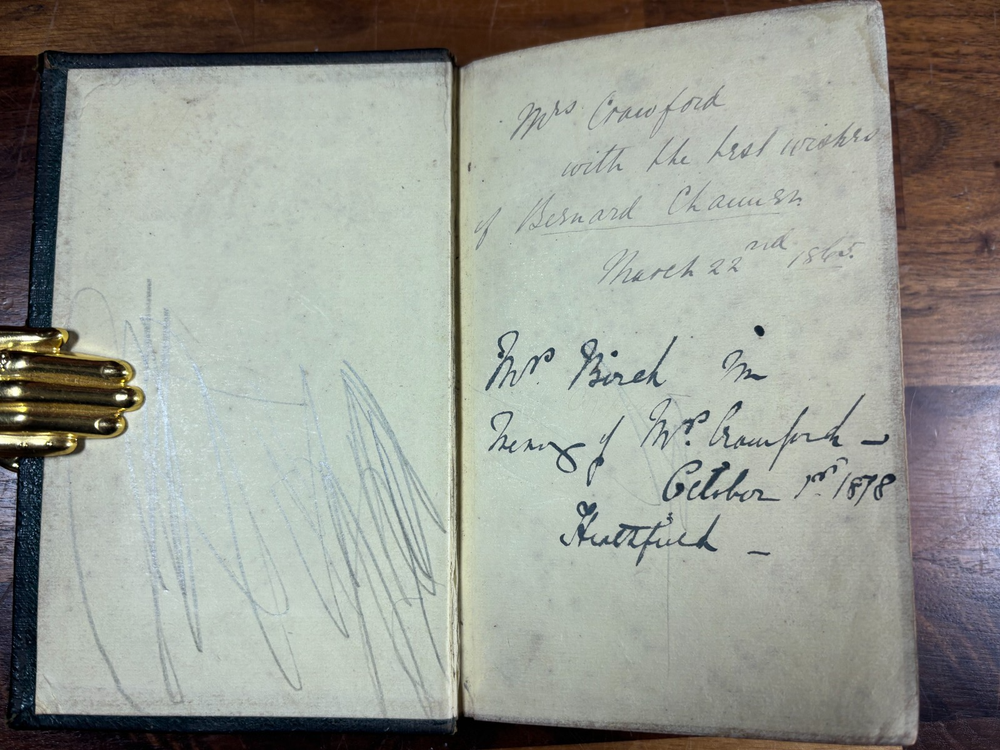 Mrs Crawford
with the best wishes
of Bernard
March 22nd 1865.
Mrs. Birch In
Memory of Mrs. Crawford –
October 1st. 1878
Heathfield –